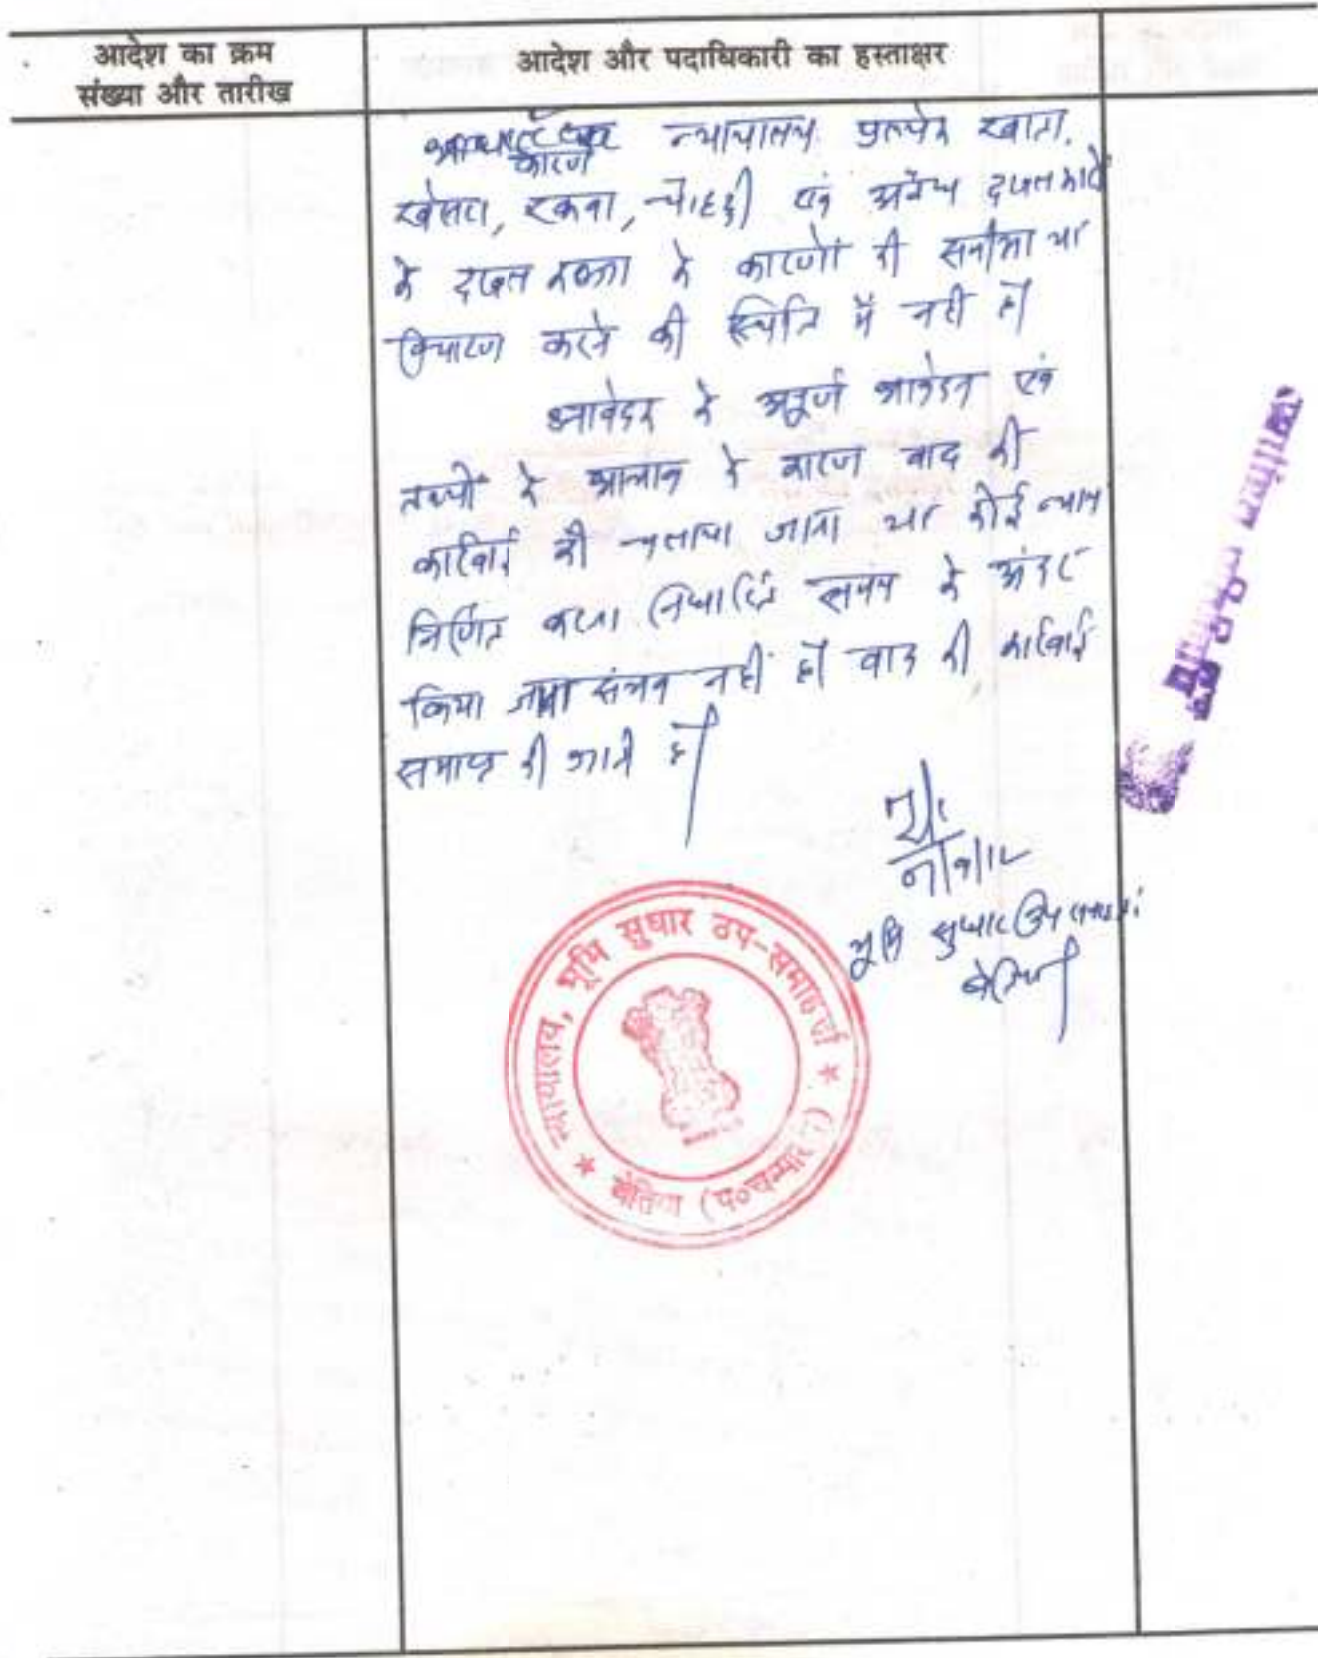 आदेश का क्रम
संख्या और तारीख
आदेश और पदाधिकारी का हस्ताक्षर
कारण न्यायालय प्रत्येक खाता,
खेसरा, रकवा, चौहद्दी एवं अवैध
के दखल कब्जा के कारणों की समीक्षा या
विचारण करने की स्थिति में नहीं है।
आवेदक के अपूर्ण आवेदन एवं
तथ्यों के अभाव के कारण वाद की
कार्रवाई को चलाया जाना या कोई न्याय
निर्णित करना निर्धारित समय के अंदर
किया जाना संभव नहीं है। वाद की कार्रवाई
समाप्त की जाती है।
भूमि सुधार उप समाहर्ता
बेतिया
न्यायालय, भूमि सुधार उप-समाहर्ता
बेतिया (प०चम्पारण)